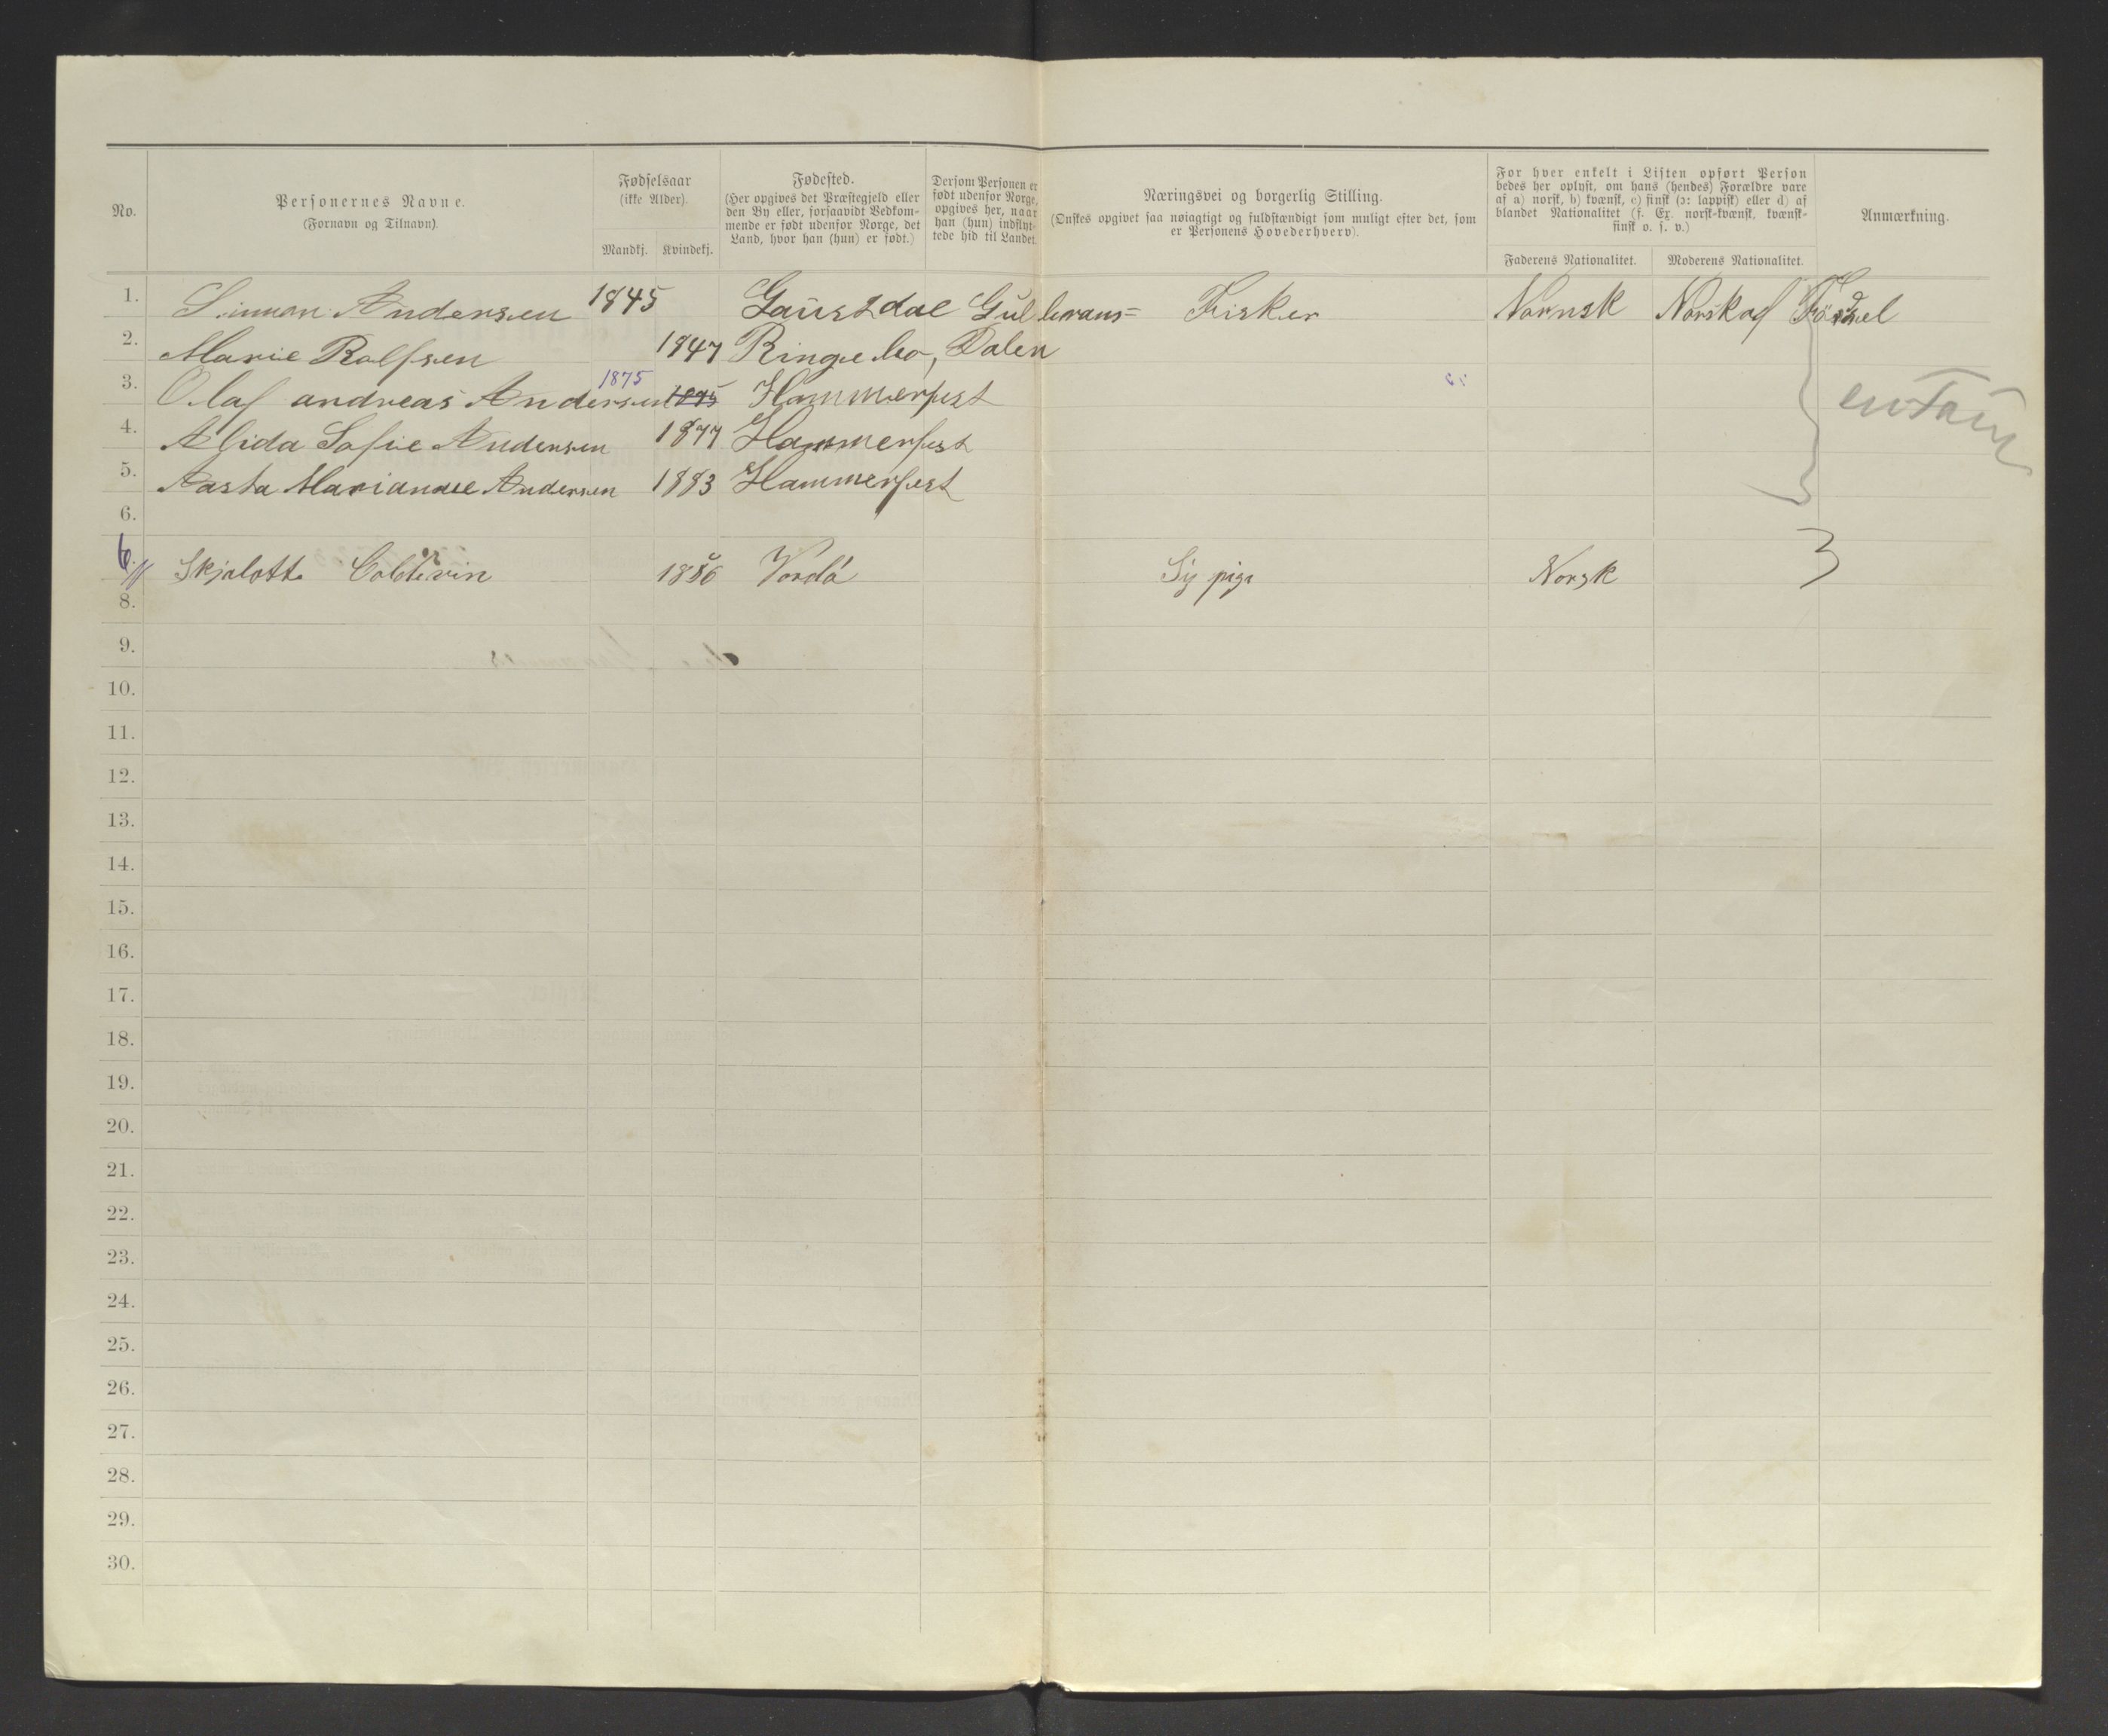 No.
Personernes Navne.
(Fornavn og Tilnavn).
Fødselsaar
(ikke Alder).
Mandkj. Kvindekj.
Fødested.
(Her opgives det Præstegjeld eller
den By eller, forsaavidt Vedkom-
mende er født udenfor Norge, det
Land, hvor han (hun) er født.)
Dersom Personen er
født udenfor Norge,
opgives her, naar
han (hun) indflyt-
tede hid til Landet.
Næringsvei og borgerlig Stilling.
(Ønskes opgivet saa nøiagtigt og fuldstændigt som muligt efter det, som
er Personens Hovederhverv).
For hver enkelt i Listen opført Person
bedes her oplyst, om hans (hendes) Forældre vare
af a) norsk, b) kvænsk, c) finsk (ɔ: lappisk) eller d) af
blandet Nationalitet (f. Ex. norsk-kvænsk, kvænsk-
finsk o. s. v.)
Faderens Nationalitet. Moderens Nationalitet.
Anmærkning.
1. Simon Andersen 1845 Gausdal Gulbrans= Fisker Nornsk Norsk af Födsel
2. Marie Rolfsen 1847 Ringebo, Dalen
3. Olaf andreas Andersen 1875 1875 Hammerfest
4. Alida Sofie Andersen 1877 Hammerfest
5. Aasta Mariane Andersen 1883 Hammerfest
en Fam
6.
6. Skjalotte Coldevin 1856 Vardö Sy pige Norsk
8.
9.
10.
11.
12.
13.
14.
15.
16.
17.
18.
19.
20.
21.
22.
23.
24.
25.
26.
27.
28.
29.
30.